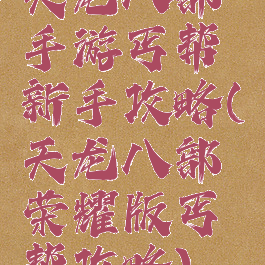 天龙八部
手游丐帮
新手攻略(
天龙八部
荣耀版丐
帮攻略)